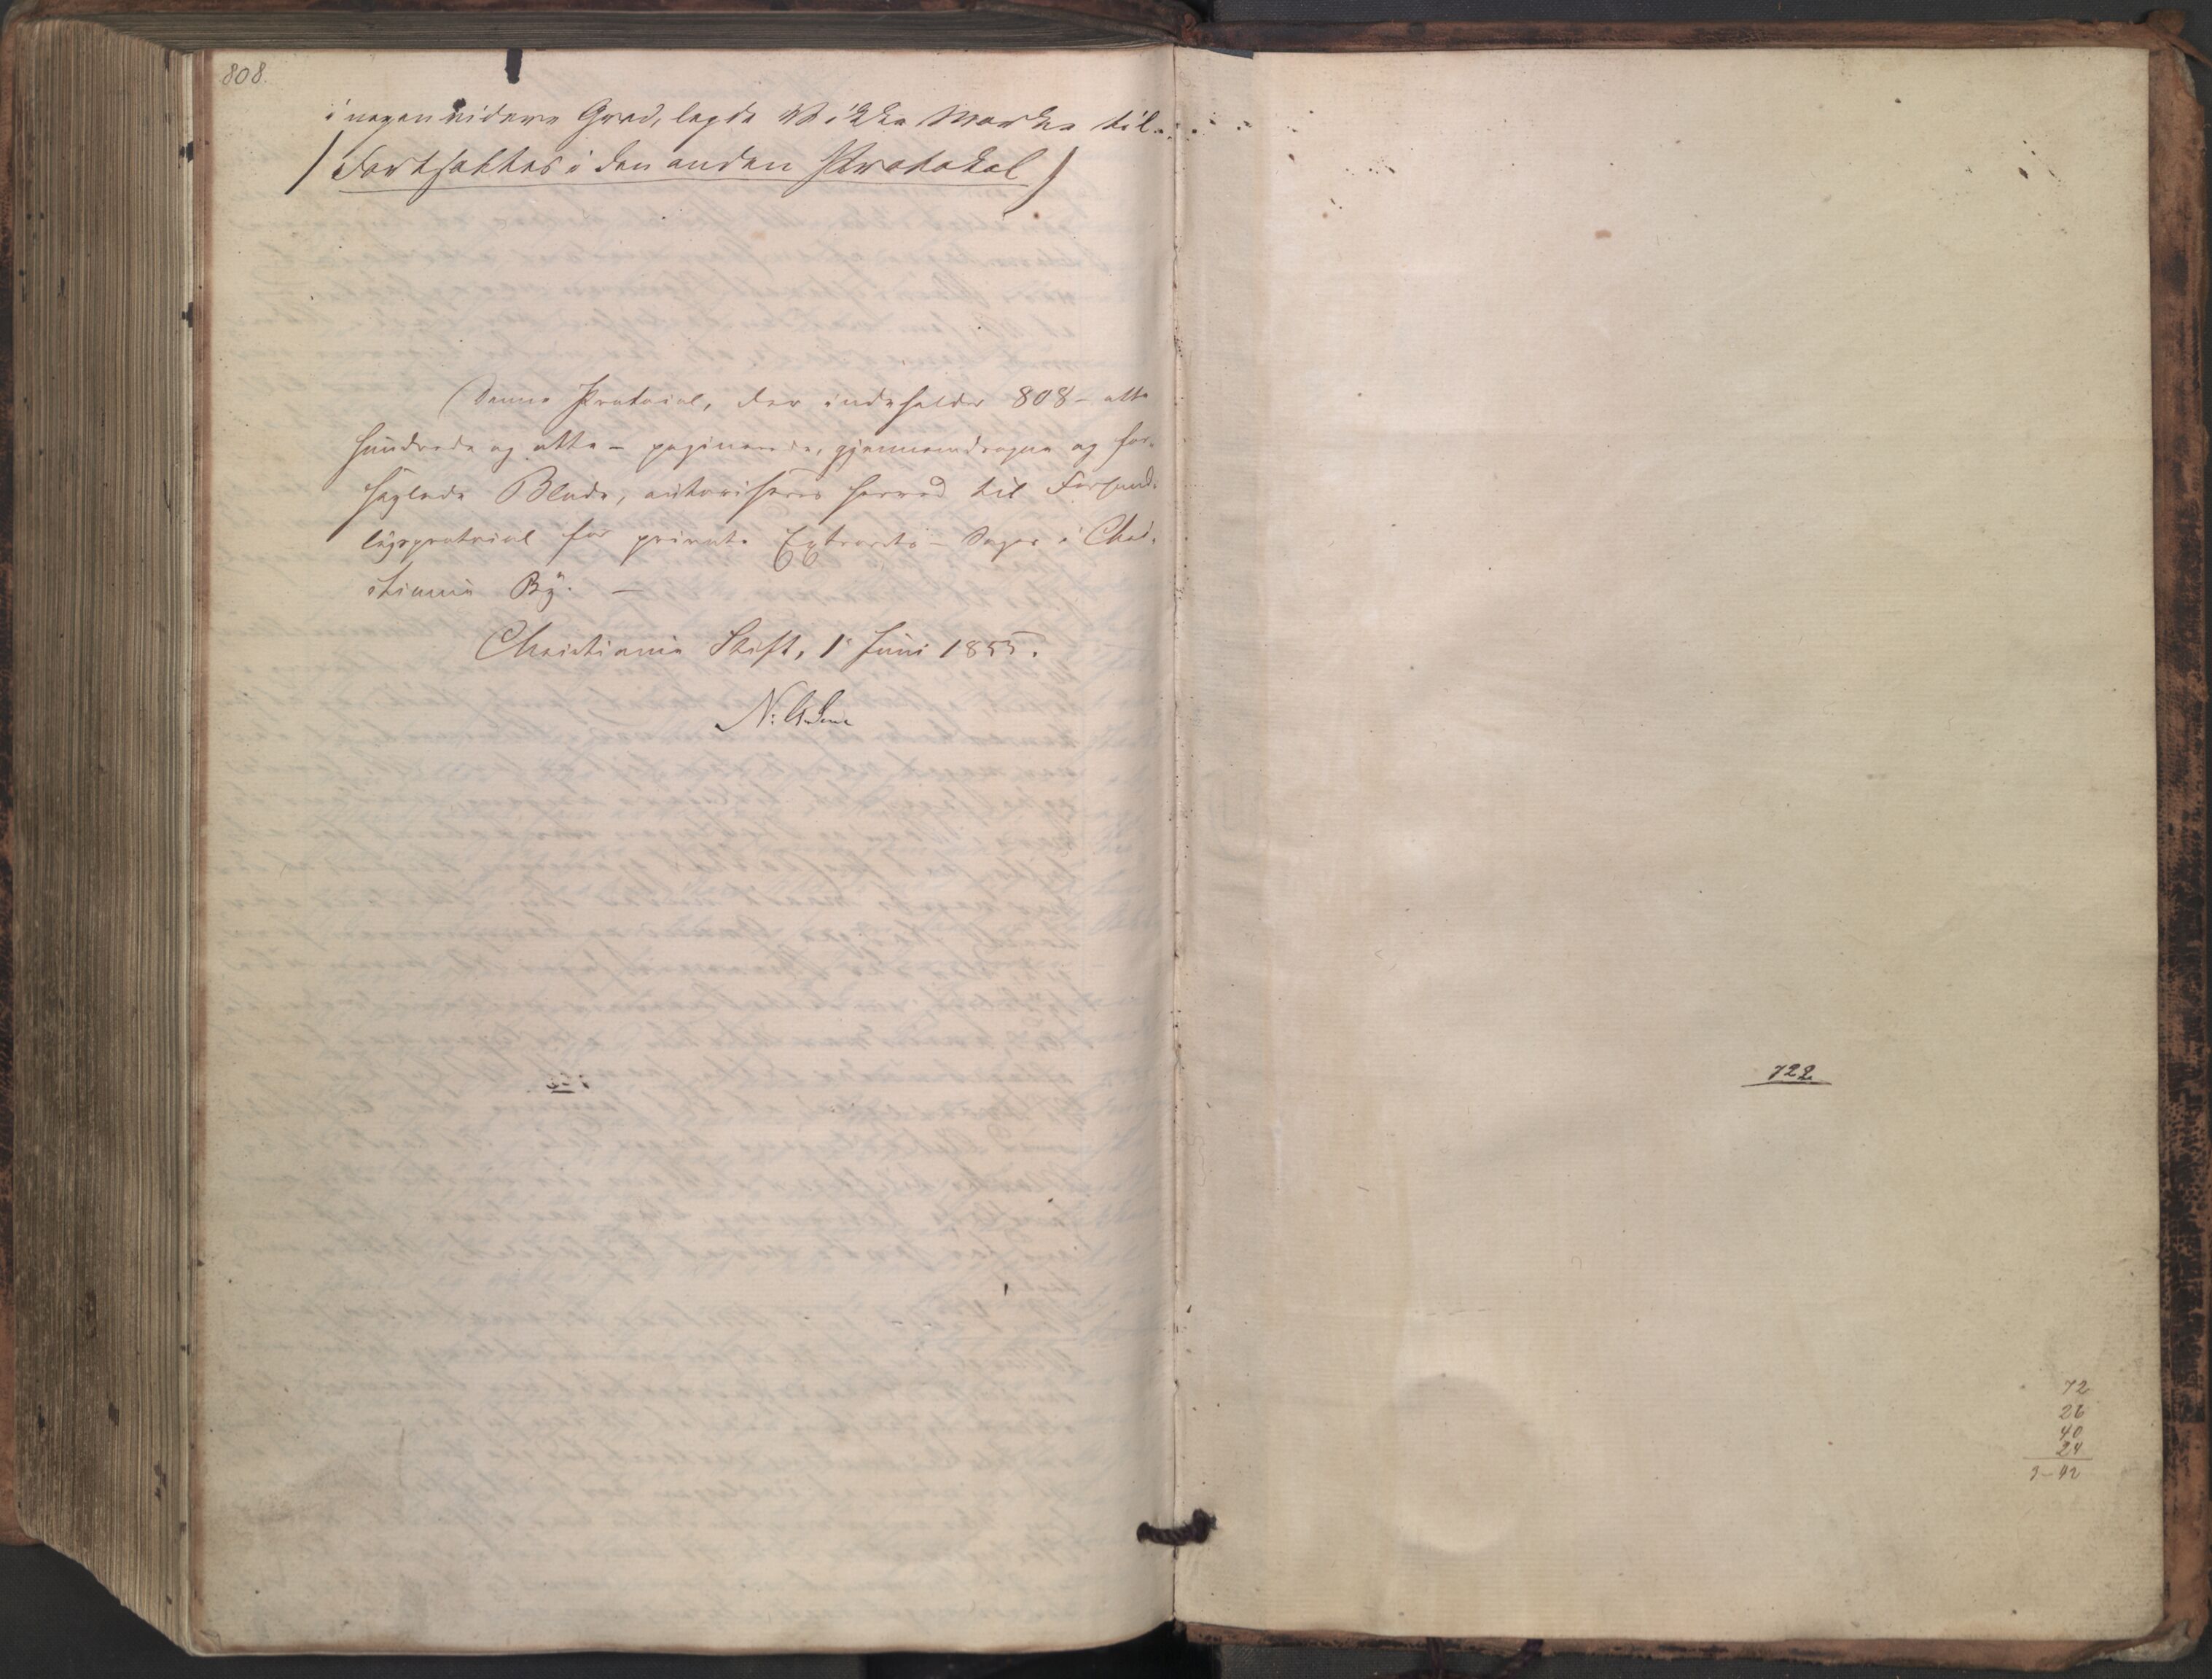 808.
i nogen videre Grad, lagde V ikke Mærke til.
/ Fortsættes i den anden Protokol /
Denne Protocol, der indeholder 808 - otte
hundrede og otte - paginerede, gjennemdragne og for-
seglede Blade, autoriseres herved til Forhand-
lingsprotocol for private Extrarets-Sager i Chri-
stiania By. -
Christiania Stift, 1 Juni 1855.
722
72
26
40
24
42